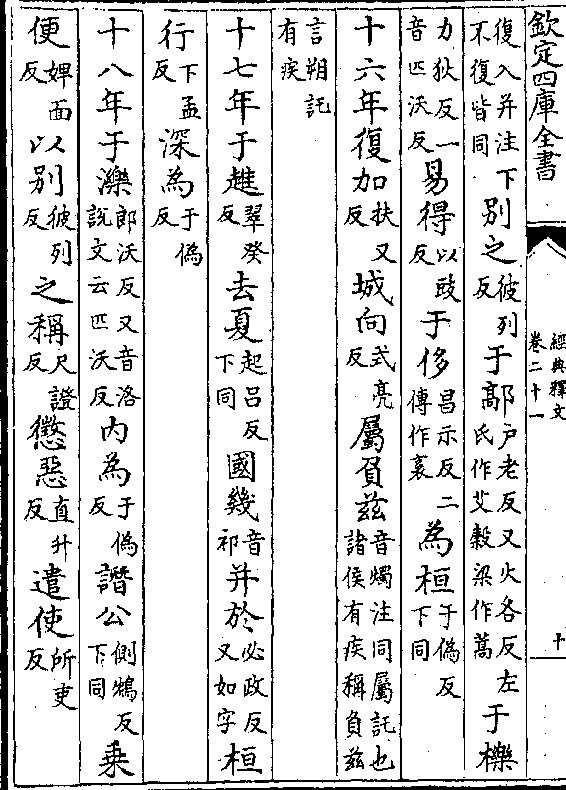 欽定四庫全書
經典釋文
卷二十一
十
復入并注下不復皆同別之彼列反于鄗戶老反又火各反左氏作艾穀梁作蒿于櫟
力狄反一音匹沃反易得以豉反于侈昌示反二傳作袲為桓于偽反下同
十六年復加扶又反城向式亮反屬負兹音燭注同屬託也諸侯有疾稱負兹
言朔託有疾
十七年于趡翠癸反去夏起呂反下同國幾音祁并於必政反又如字桓
行下孟反深為于偽反
十八年于濼郎沃反又音洛說文云匹沃反內為于偽反譖公側鴆反下同乗
便婢面反以別彼列反之稱尺證反懲惡直升反遣使所吏反